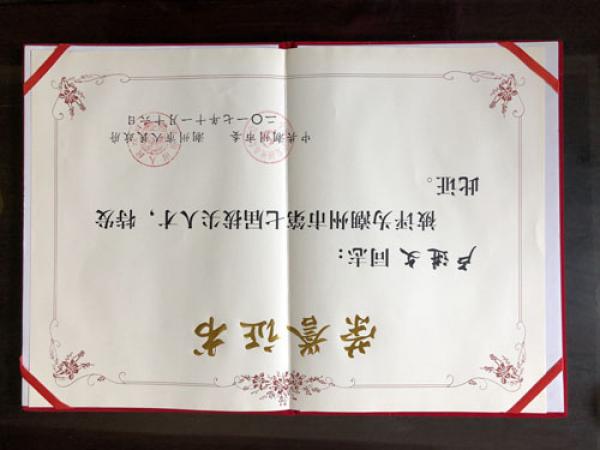 荣誉证书
卢进文同志：
被评为潮州市第七届拔尖人才，特发
此证。
中共潮州市委 潮州市人民政府
二〇一七年十一月十六日